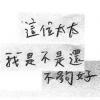 這位太太
我是不是還
不夠好